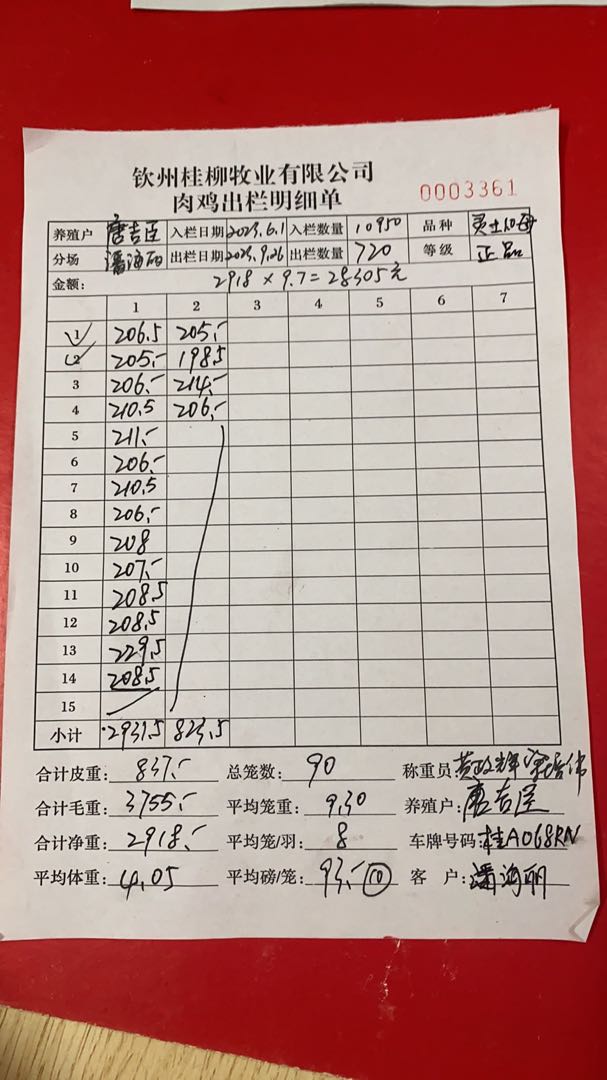 钦州桂柳牧业有限公司
肉鸡出栏明细单 0003361
养殖户 唐吉臣 入栏日期 2023.6.1 入栏数量 10950 品种
分场 出栏日期 2023.9.26 出栏数量 720 等级 正品
金额: 2918 × 9.7 = 28305元
1 2 3 4 5 6 7
1 206.5 205.-
2 205.- 198.5
3 206.- 214.-
4 210.5 206.-
5 211.-
6 206.-
7 210.5
8 206.-
9 208
10 207.-
11 208.5
12 208.5
13 229.5
14 208.5
15
小计 2931.5 823.5
合计皮重: 837.- 总笼数: 90 称重员:
合计毛重: 3755.- 平均笼重: 9.30 养殖户: 唐吉臣
合计净重: 2918.- 平均笼/羽: 8 车牌号码: 桂A068RN
平均体重: 4.05 平均磅/笼: 93.- 10 客 户: 潘鸿丽